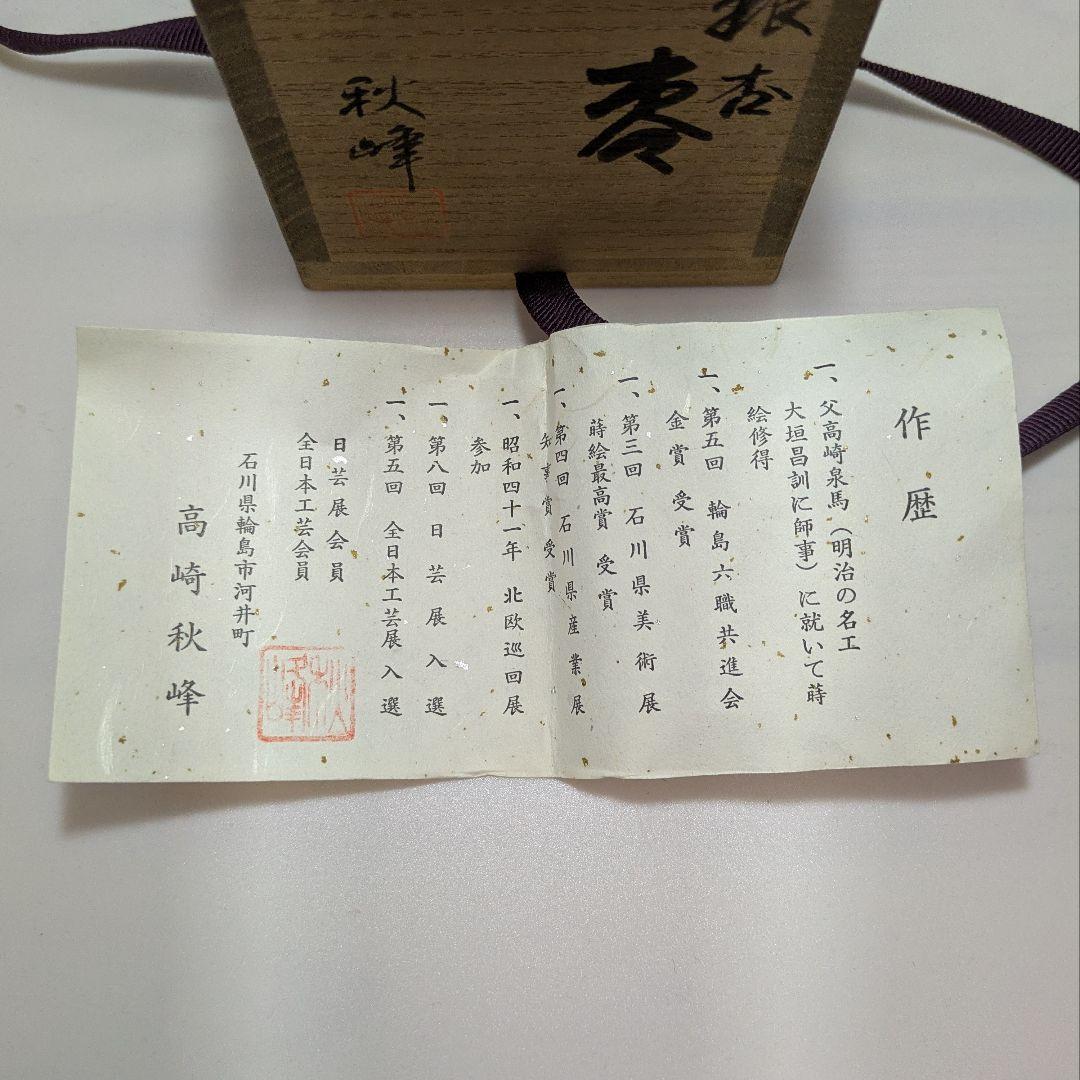 銀杏
棗
秋峰
作歴
一、父高崎泉馬(明治の名工
大垣昌訓に師事)に就いて蒔
絵修得
一、第五回 輪島六職共進会
金賞 受賞
一、第三回 石川県美術展
蒔絵最高賞 受賞
一、第四回 石川県産業展
知事賞 受賞
一、昭和四十一年 北欧巡回展
参加
一、第八回 日芸展入選
一、第五回 全日本工芸展入選
日芸展会員
全日本工芸会員
石川県輪島市河井町
高崎秋峰
秋峰